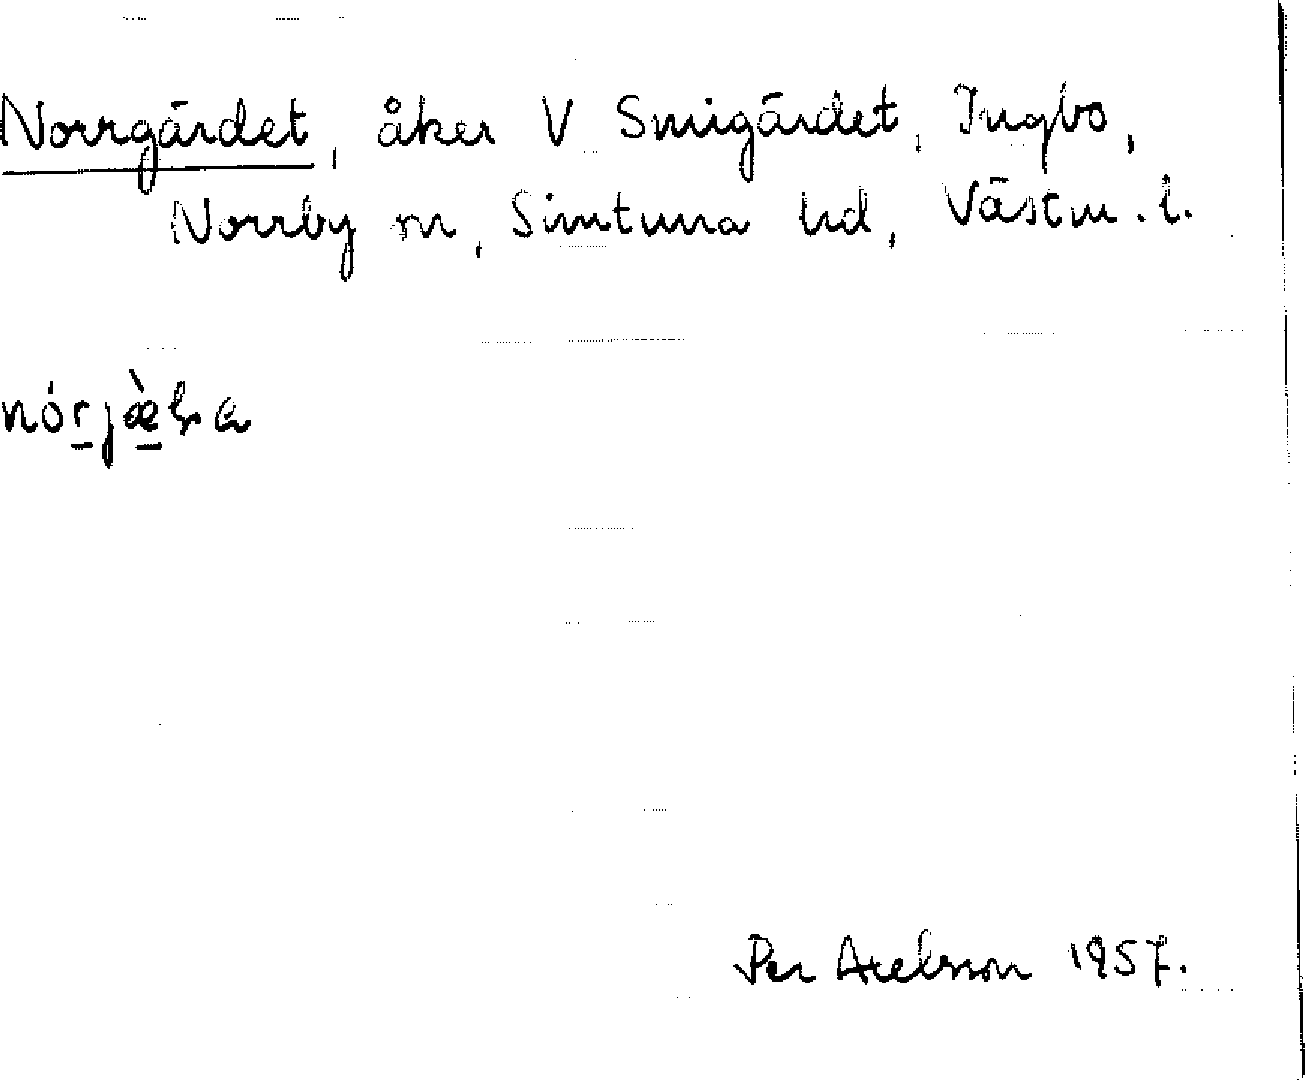 Norrgärdet, åker V Smigärdet, Ingbo,
Norrby sn, Simtuna hd, Västm. l.
Per Axelsson 1957.